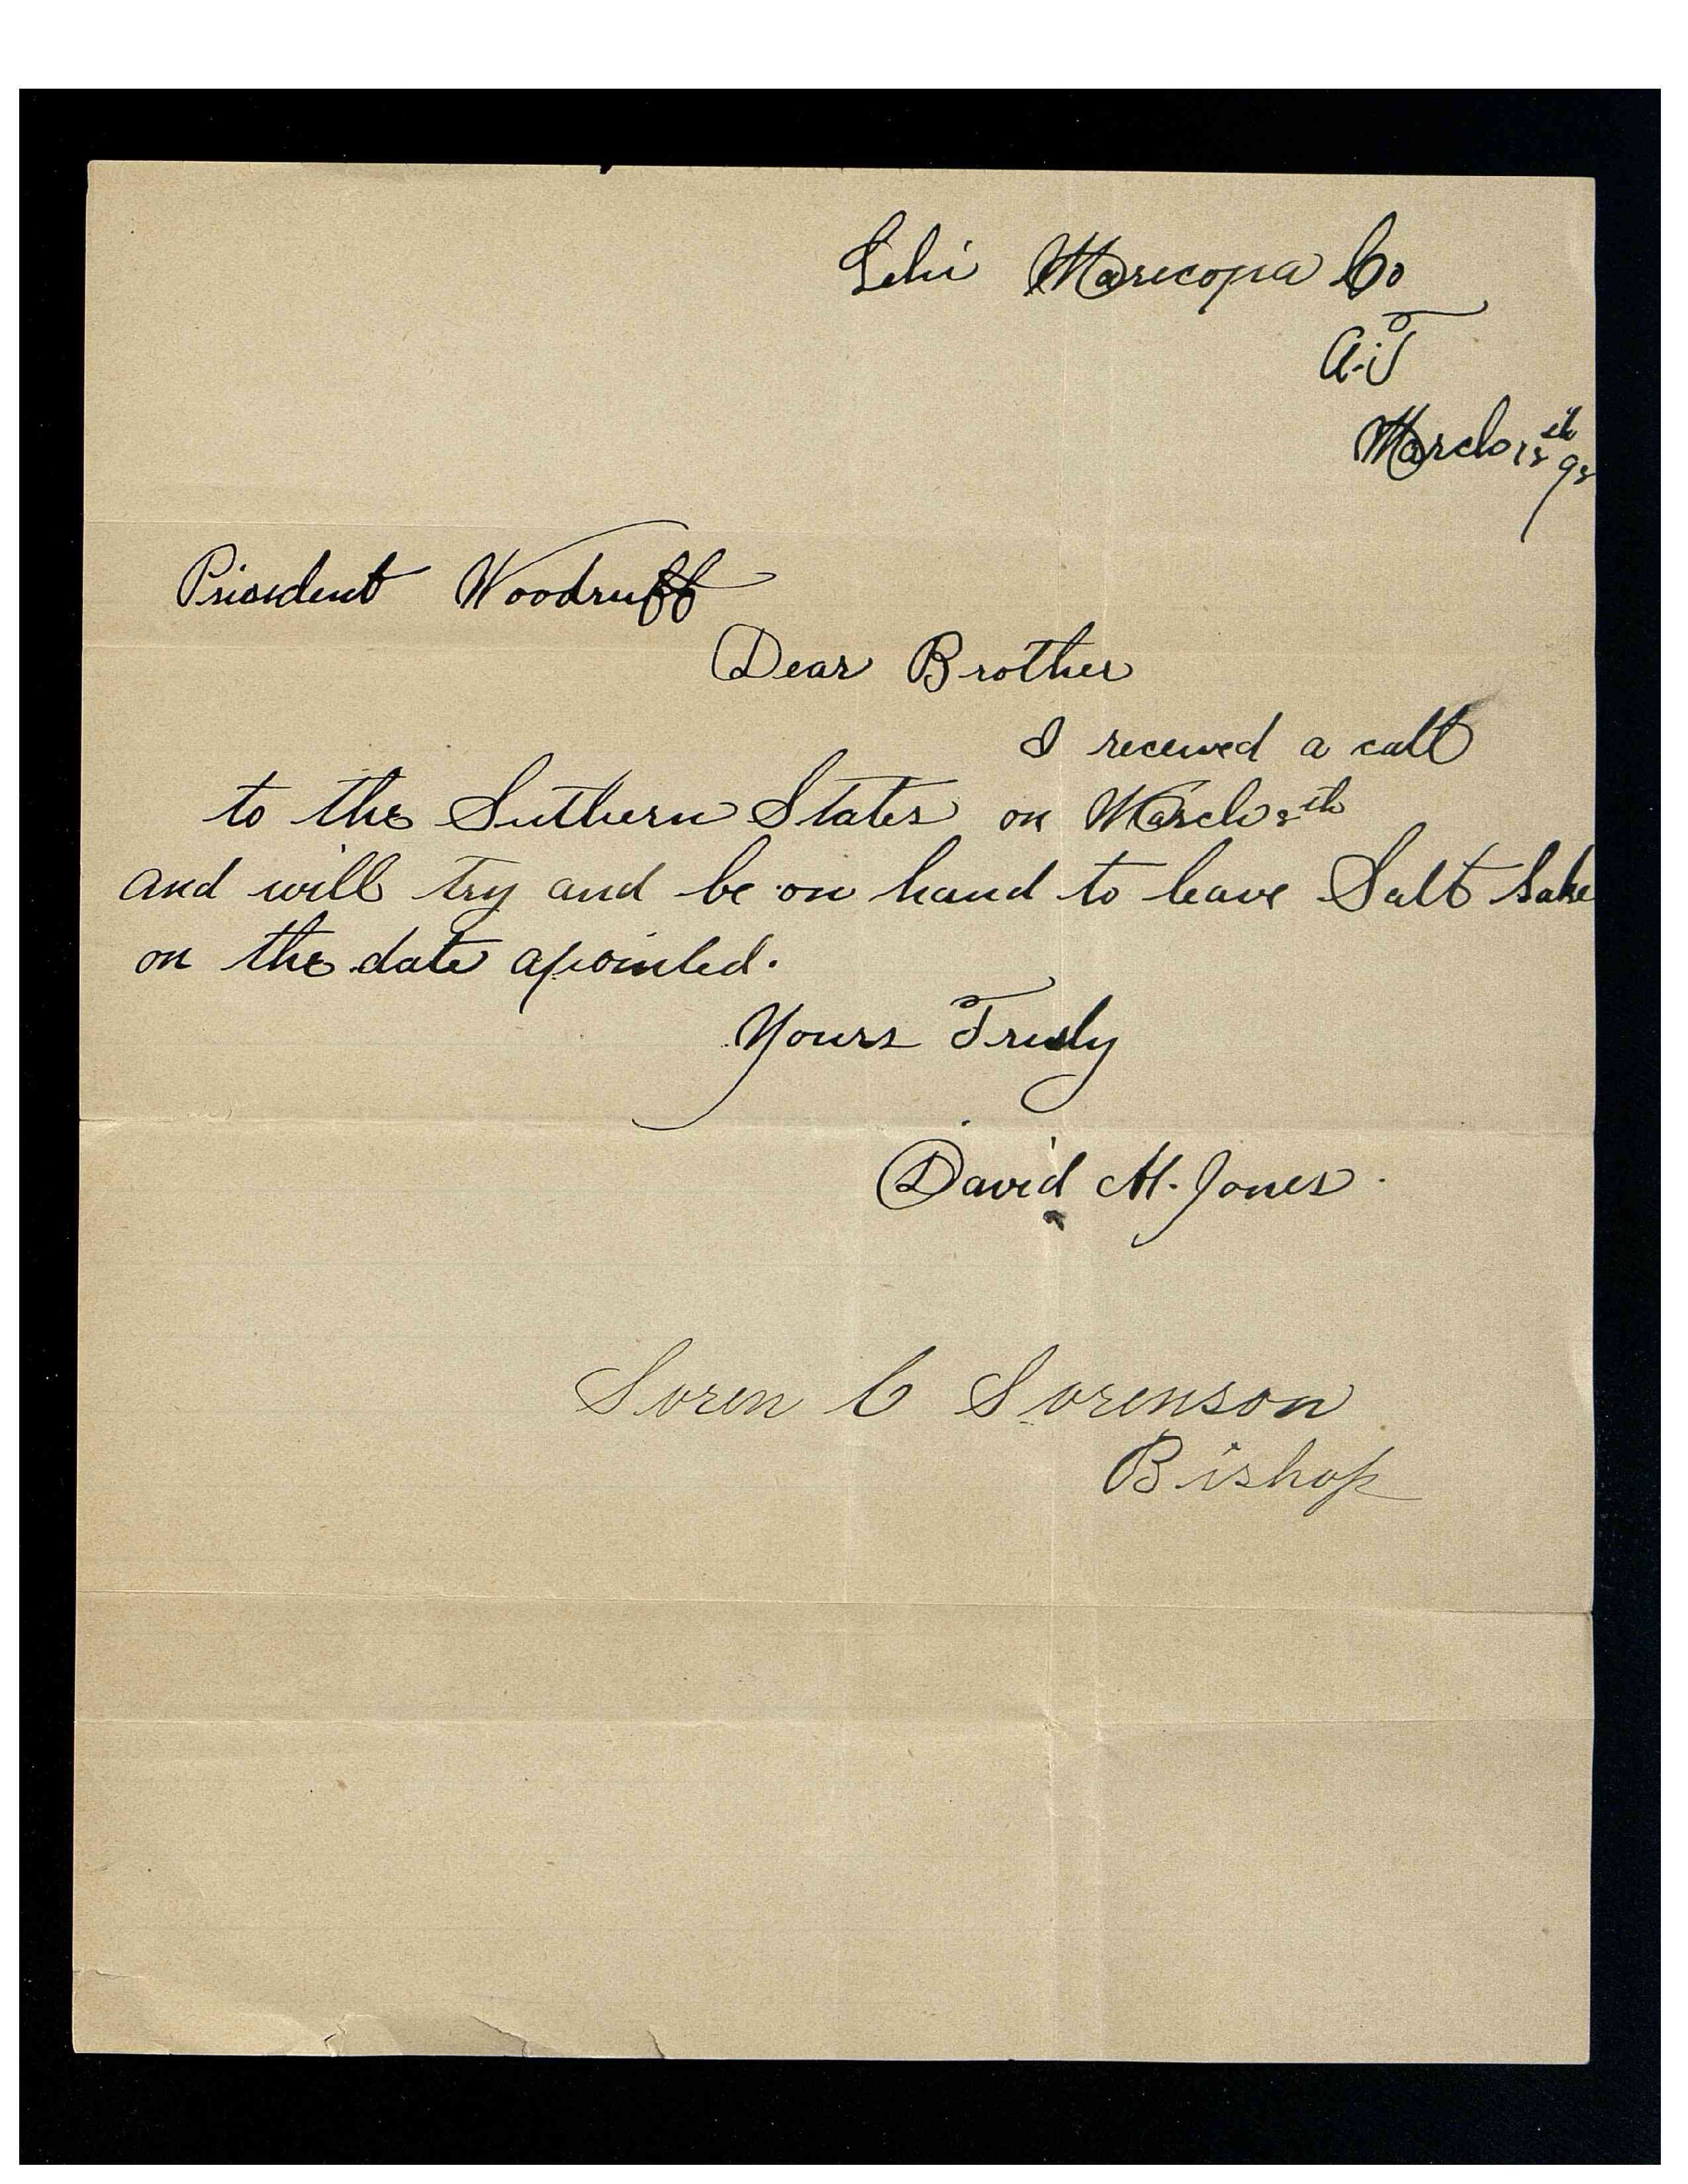 Lehi Maricopa Co
A.T
March 18th 98
President Woodruff
Dear Brother
I received a call
to the Suthern States on March 8th
and will try and be on hand to leave Salt Lake
on the date apointed.
Yours Truly
David H. Jones.
Soren C Sorenson
Bishop